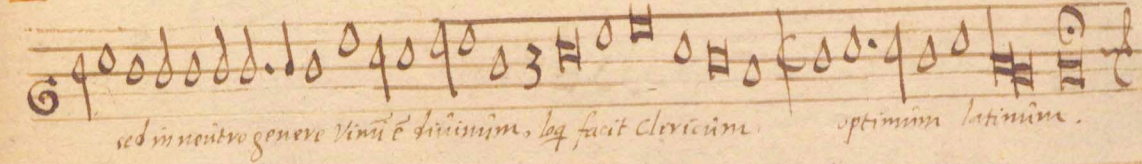 sed in neutro genere Vinũ ẽ diuinum, loq̃ facit Clericum optimum latinum.